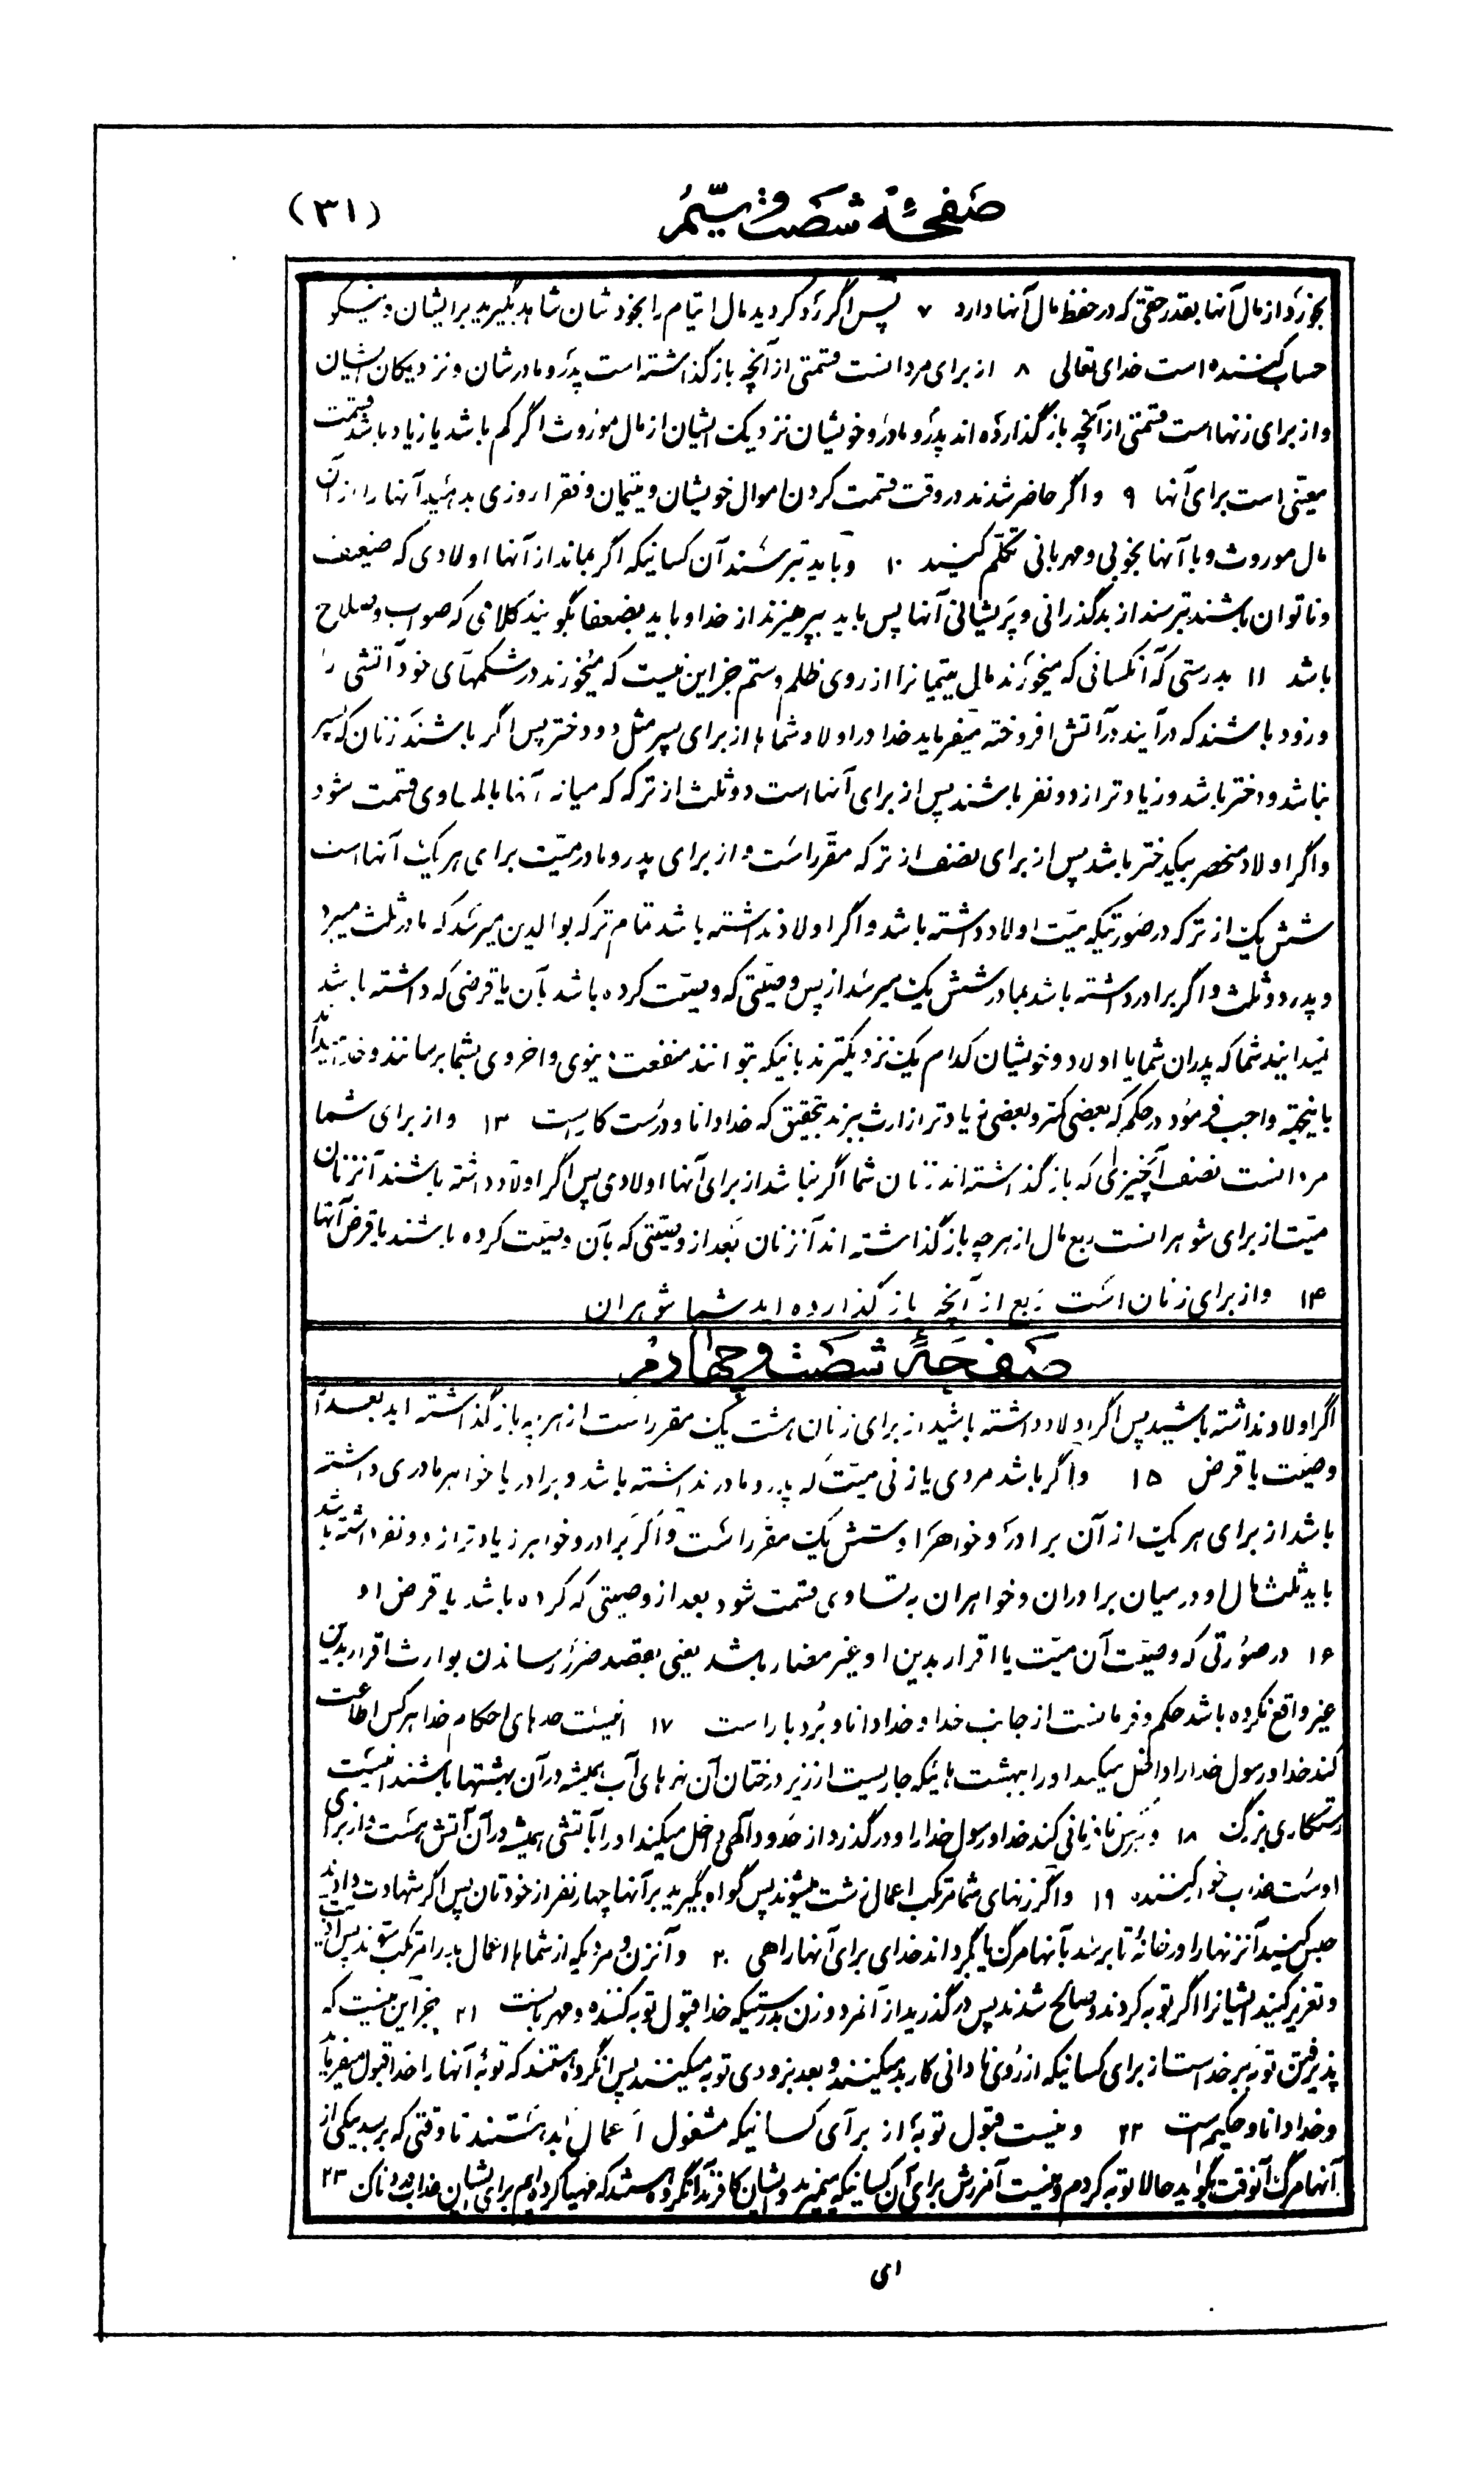 صفحهٔ شصت و سیّم
(۳۱)
بخورد از مال آنها بقدر حقی که در حفظ مال آنها دارد ۷ پس اگر رد کردید مال ایتام را بخودشان شاهد بگیرید بر ایشان و نیکو
حساب کننده است خدای تعالی ۸ از برای مردانست قسمتی از آنچه باز گذاشته است پدر و مادرشان و نزدیکان ایشان
و از برای زنها است قسمتی از آنچه باز گذارده‌اند پدر و مادر و خویشان نزدیک ایشان از مال موروث اگر کم باشد یا زیاد باشد قسمت
معیّنی است برای آنها ۹ و اگر حاضر شدند در وقت قسمت کردن اموال خویشان و یتیمان و فقرا روزی بدهید آنها را از آن
مال موروث و با آنها بخوبی و مهربانی تکلّم کنید ۱۰ و باید بترسند آن کسانیکه اگر بماند از آنها اولادی که ضعیف
و ناتوان باشند بترسند از بد گذرانی و پریشانی آنها پس باید بپرهیزند از خدا و باید بضعفا بگویند کلامی که صواب و صلاح
باشد ۱۱ بدرستی که آنکسانی که میخورند مال یتیمانرا از روی ظلم و ستم جز این نیست که میخورند در شکمهای خود آتشی را
و زود باشند که در آیند در آتش افروخته میفرماید خدا در اولاد شماها از برای پسر مثل دو دختر پس اگر باشند زنان که پسر
نباشد و دختر باشد و زیادتر از دو نفر باشند پس از برای آنها است دو ثلث از ترکه که میانه آنها بالمساوی قسمت شود
و اگر اولاد منحصر بیکدختر باشد پس از برای نصف از ترکه مقرّر است و از برای پدر و مادر میّت برای هر یک آنها است
شش یک از ترکه در صورتیکه میّت اولاد داشته باشد و اگر اولاد نداشته باشد تمام ترکه بوالدین میرسد که مادر ثلث میبرد
و پدر دو ثلث و اگر برادر داشته باشد بمادر شش یک میرسد از پس وصیّتی که وصیّت کرده باشد بآن یا قرضی که داشته باشد
نمیدانید شما که پدران شما یا اولاد و خویشان کدام یک نزدیکترند بانیکه بتوانند منفعت دنیوی و اخروی بشما برسانند و خداوند
باینجهته واجب فرمود در حکم که بعضی کمتر و بعضی زیادتر از ارث ببرند بتحقیق که خدا دانا و درست کار است ۱۳ و از برای شما
مردانست نصف آنچیزی که باز گذاشته‌اند زنان شما اگر نباشد از برای آنها اولادی پس اگر اولاد داشته باشند آنزنان
میّت از برای شوهرانست ربع مال از هر چه باز گذاشته‌اند آنزنان بعد از وصیّتی که بآن وصیّت کرده باشند یا قرض آنها
۱۴ و از برای زنان است ربع از آنچه باز گذارده‌اید شما شوهران
صفحهٔ شصت و چهارم
اگر اولاد نداشته باشید پس اگر اولاد داشته باشید از برای زنان هشت یک مقرر است از هر چه باز گذاشته‌اید بعد از
وصیّت یا قرض ۱۵ و اگر باشد مردی یا زنی میّت که پدر و مادر نداشته باشد و برادر یا خواهر مادری داشته
باشد از برای هر یک از آن برادر و خواهر او شش یک مقرّر است و اگر برادر و خواهر زیادتر از دو نفر داشته باشد
باید ثلث مال او در میان برادران و خواهران به تساوی قسمت شود بعد از وصیتی که کرده باشد یا قرض او
۱۶ در صورتی که وصیّت آن میّت یا اقرار بدین او غیر مضار باشد یعنی بقصد ضرر رساندن بوارث اقرار بدین
غیر واقع نکرده باشد حکم و فرمانست از جانب خدا و خدا دانا و بردبار است ۱۷ اینست حدهای احکام خدا هر کس اطاعت
کند خدا و رسول خدا را داخل میکند او را ببهشت هائیکه جاریست از زیر درختان آن نهرهای آب همیشه در آن بهشتها باشند اینست
رستگاری بزرگ ۱۸ و هر کس نافرمانی کند خدا و رسول خدا را و در گذرد از حدود آلهی داخل میکند او را بآتشی همیشه در آن آتش هست و از برای
اوست عذاب خوار کننده ۱۹ و اگر زنهای شما مرتکب اعمال زشت میشوند پس گواه بگیرید بر آنها چهار نفر از خودتان پس اگر شهادت دادند
حبس کنید آنزنها را در خانهٔ تا برسد بآنها مرگ یا بگرداند خدای برای آنها راهی ۲۰ و آنزن و مردیکه از شماها اعمال بد را مرتکب شوند پس اذیت
و تعزیر کنید ایشانرا اگر توبه کردند و صالح شدند پس در گذرید از آنمرد و زن بدرستیکه خدا قبول توبه کننده و مهربانست ۲۱ بجز این نیست که
پذیرفتن توبه بر خداست از برای کسانیکه از روی نادانی کار بد میکنند و بعد بزودی توبه میکنند پس آنگروه هستند که توبهٔ آنها را خدا قبول میفرماید
و خدا دانا و حکیم است ۲۲ و نیست قبول توبه از برای کسانیکه مشغول اعمال بد هستند تا وقتی که برسد بیکی از
آنها مرگ آنوقت بگوید حالا توبه کردم و نیست آمرزش برای آن کسانیکه بمیرند و ایشان کافرند آنگروه هستند که مهیا کرده‌ایم برای ایشان عذاب دردناک ۲۳
ای